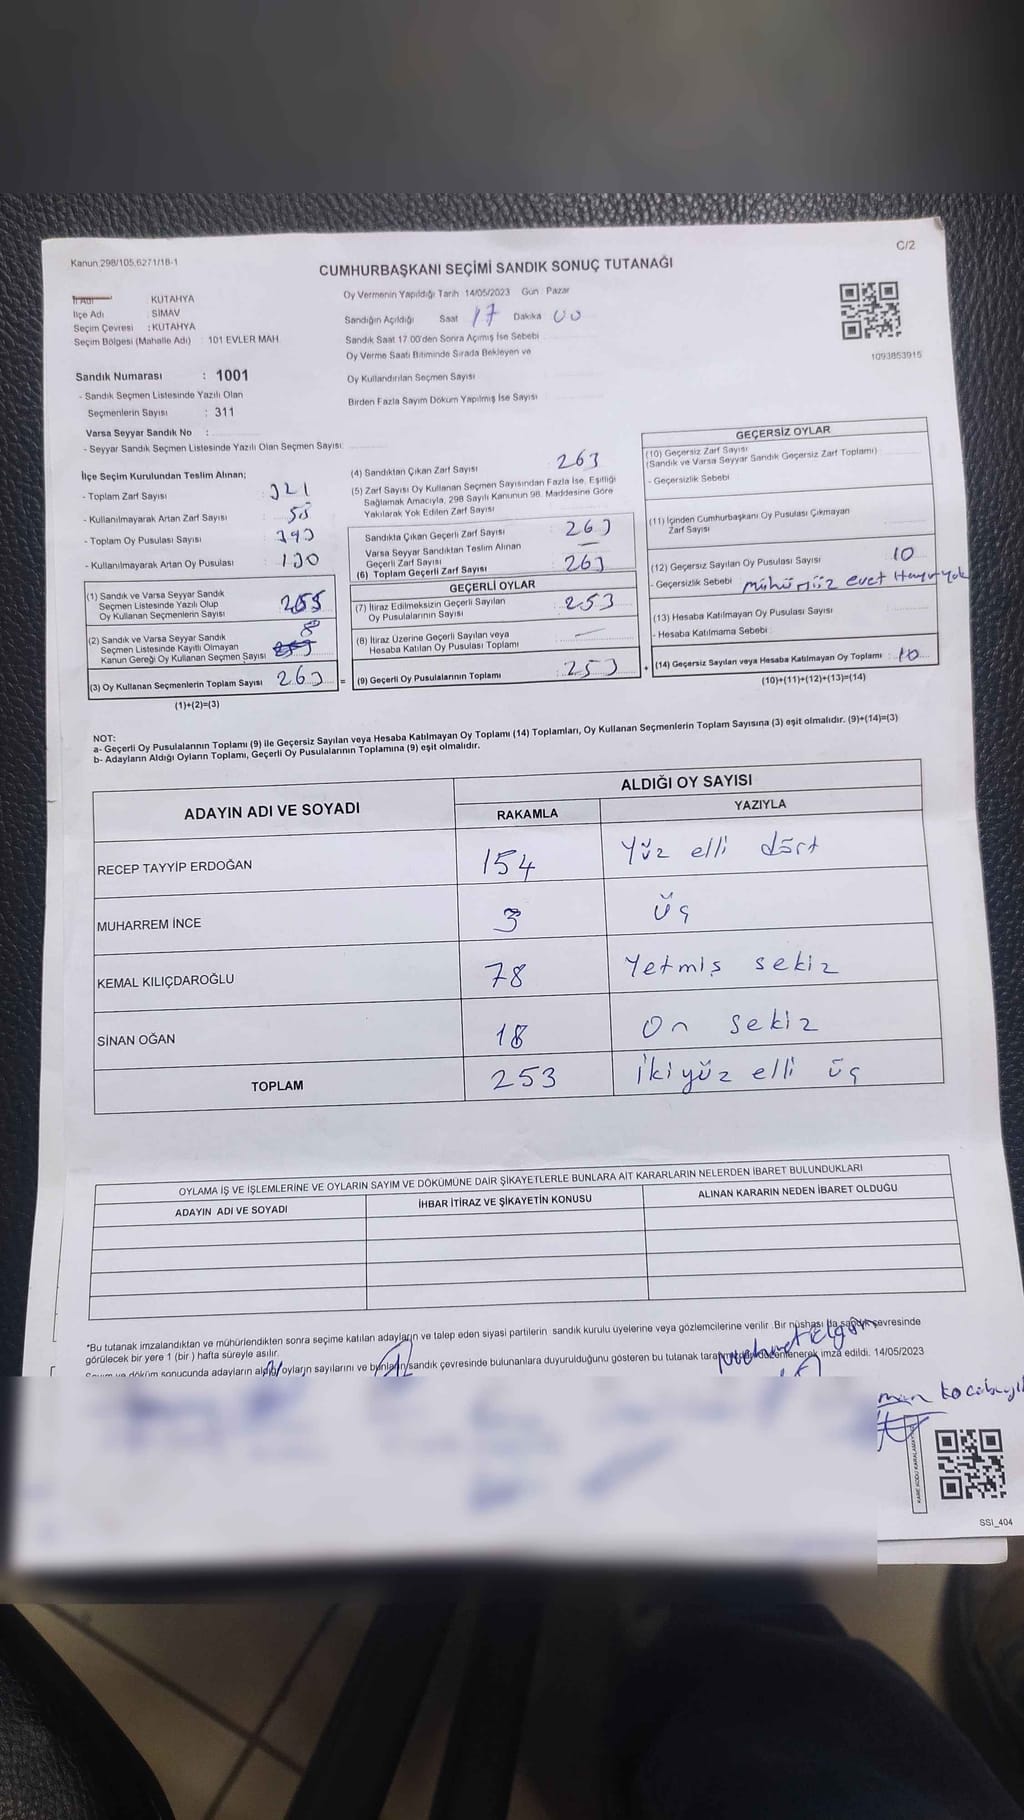 Kanun 298/105,6271/18-1
C/2
CUMHURBAŞKANI SEÇİMİ SANDIK SONUÇ TUTANAĞI
İl Adı KUTAHYA
İlçe Adı : SİMAV
Seçim Çevresi : KUTAHYA
Seçim Bölgesi (Mahalle Adı) : 101 EVLER MAH.
Sandık Numarası : 1001
- Sandık Seçmen Listesinde Yazılı Olan
Seçmenlerin Sayısı : 311
Varsa Seyyar Sandık No :
- Seyyar Sandık Seçmen Listesinde Yazılı Olan Seçmen Sayısı:
Oy Vermenin Yapıldığı Tarih 14/05/2023 Gün : Pazar
Sandığın Açıldığı Saat 17 Dakika 00
Sandık Saat 17.00'den Sonra Açımış İse Sebebi
Oy Verme Saati Bitiminde Sırada Bekleyen ve
Oy Kullandırılan Seçmen Sayısı
Birden Fazla Sayım Döküm Yapılmış İse Sayısı
1093853915
İlçe Seçim Kurulundan Teslim Alınan;
- Toplam Zarf Sayısı : 321
- Kullanılmayarak Artan Zarf Sayısı : 58
- Toplam Oy Pusulası Sayısı : 393
- Kullanılmayarak Artan Oy Pusulası : 130
(1) Sandık ve Varsa Seyyar Sandık
Seçmen Listesinde Yazılı Olup
Oy Kullanan Seçmenlerin Sayısı 255
(2) Sandık ve Varsa Seyyar Sandık
Seçmen Listesinde Kayıtlı Olmayan
Kanun Gereği Oy Kullanan Seçmen Sayısı 8
(3) Oy Kullanan Seçmenlerin Toplam Sayısı 263 =
(1)+(2)=(3)
(4) Sandıktan Çıkan Zarf Sayısı 263
(5) Zarf Sayısı Oy Kullanan Seçmen Sayısından Fazla İse, Eşitliği
Sağlamak Amacıyla, 298 Sayılı Kanunun 98. Maddesine Göre
Yakılarak Yok Edilen Zarf Sayısı
Sandıkta Çıkan Geçerli Zarf Sayısı : 263
Varsa Seyyar Sandıktan Teslim Alınan
Geçerli Zarf Sayısı : —
(6) Toplam Geçerli Zarf Sayısı : 263
GEÇERLİ OYLAR
(7) İtiraz Edilmeksizin Geçerli Sayılan
Oy Pusulalarının Sayısı : 253
(8) İtiraz Üzerine Geçerli Sayılan veya
Hesaba Katılan Oy Pusulası Toplamı —
(9) Geçerli Oy Pusulalarının Toplamı : 253 +
GEÇERSİZ OYLAR
(10) Geçersiz Zarf Sayısı
(Sandık ve Varsa Seyyar Sandık Geçersiz Zarf Toplamı)
- Geçersizlik Sebebi
(11) İçinden Cumhurbaşkanı Oy Pusulası Çıkmayan
Zarf Sayısı
(12) Geçersiz Sayılan Oy Pusulası Sayısı 10
- Geçersizlik Sebebi mühürsüz evet Hayır yok
(13) Hesaba Katılmayan Oy Pusulası Sayısı
- Hesaba Katılmama Sebebi
(14) Geçersiz Sayılan veya Hesaba Katılmayan Oy Toplamı : 10
(10)+(11)+(12)+(13)=(14)
NOT:
a- Geçerli Oy Pusulalarının Toplamı (9) ile Geçersiz Sayılan veya Hesaba Katılmayan Oy Toplamı (14) Toplamları, Oy Kullanan Seçmenlerin Toplam Sayısına (3) eşit olmalıdır. (9)+(14)=(3)
b- Adayların Aldığı Oyların Toplamı, Geçerli Oy Pusulalarının Toplamına (9) eşit olmalıdır.
ADAYIN ADI VE SOYADI ALDIĞI OY SAYISI
RAKAMLA YAZIYLA
RECEP TAYYİP ERDOĞAN 154 Yüz elli dört
MUHARREM İNCE 3 Üç
KEMAL KILIÇDAROĞLU 78 Yetmiş sekiz
SİNAN OĞAN 18 On sekiz
TOPLAM 253 İkiyüz elli üç
OYLAMA İŞ VE İŞLEMLERİNE VE OYLARIN SAYIM VE DÖKÜMÜNE DAİR ŞİKAYETLERLE BUNLARA AİT KARARLARIN NELERDEN İBARET BULUNDUKLARI
ADAYIN ADI VE SOYADI İHBAR İTİRAZ VE ŞİKAYETİN KONUSU ALINAN KARARIN NEDEN İBARET OLDUĞU
*Bu tutanak imzalandıktan ve mühürlendikten sonra seçime katılan adayların ve talep eden siyasi partilerin sandık kurulu üyelerine veya gözlemcilerine verilir. Bir nüshası da sandık çevresinde
görülecek bir yere 1 (bir) hafta süreyle asılır.
Sayım ve döküm sonucunda adayların aldığı oyların sayılarını ve bunların sandık çevresinde bulunanlara duyurulduğunu gösteren bu tutanak düzenlenerek imza edildi. 14/05/2023
SSI_404